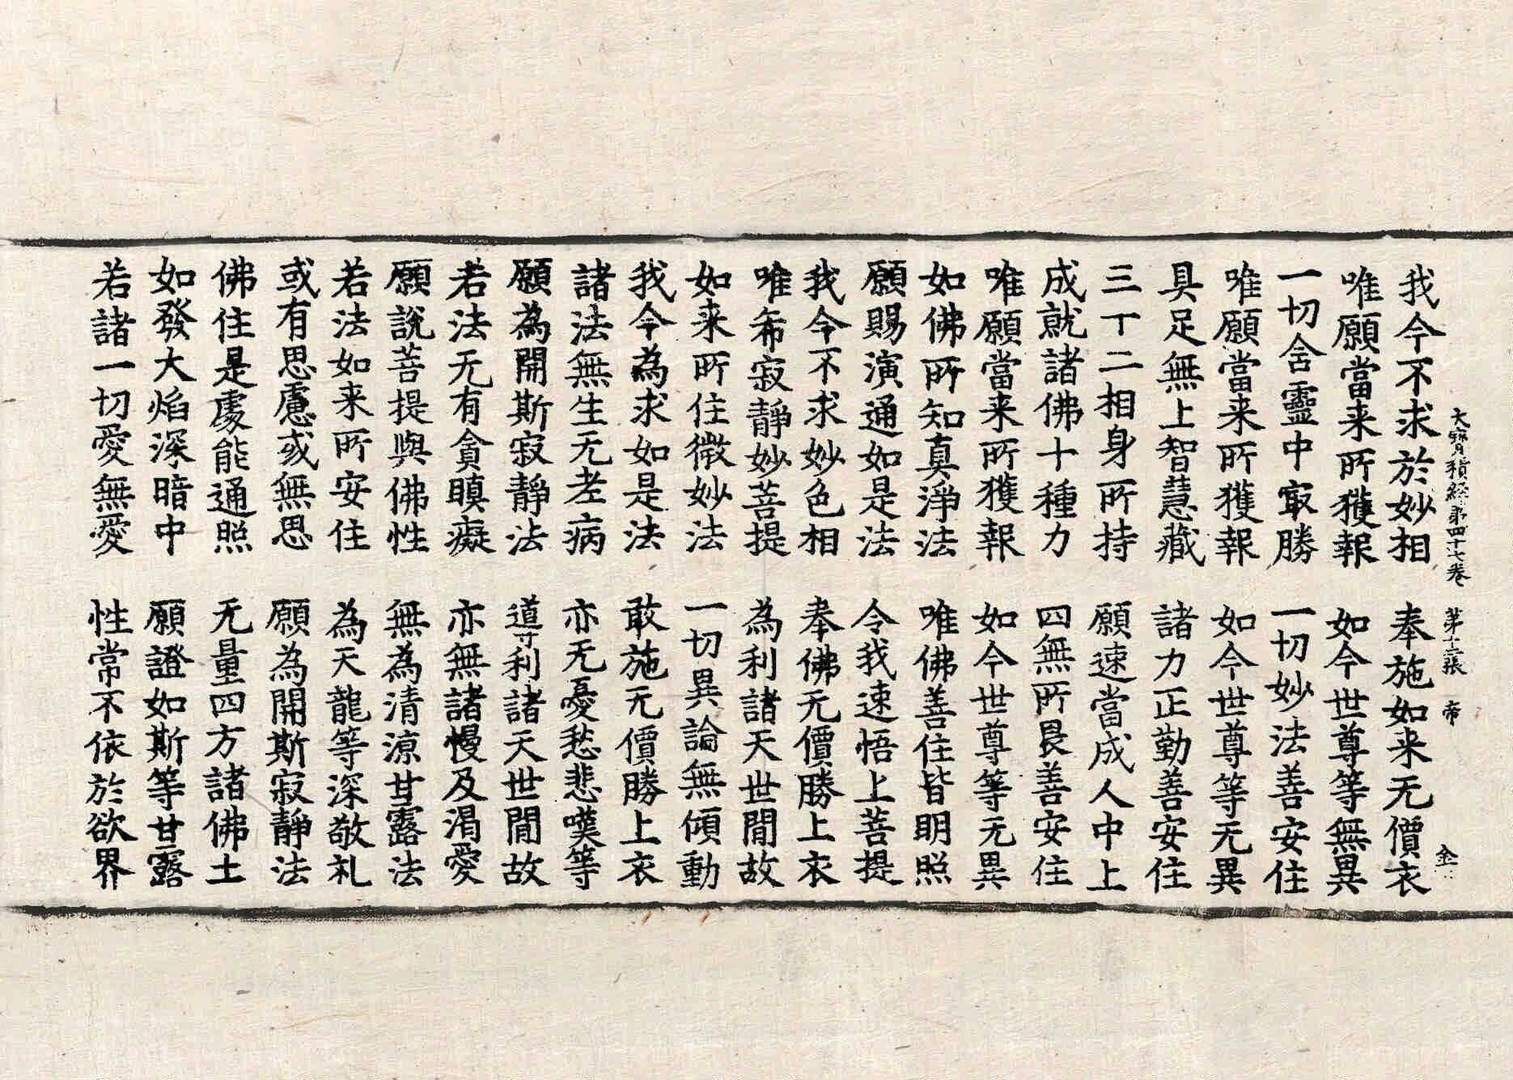 大寶積經第四十七卷 第十三張 帝 金
我今不求於妙相 奉施如来无價衣
唯願當来所獲報 如今世尊等無異
一切含靈中㝡勝 一切妙法善安住
唯願當来所獲報 如今世尊等无異
具足無上智慧藏 諸力正勤善安住
三十二相身所持 願速當成人中上
成就諸佛十種力 四無所畏善安住
唯願當来所獲報 如今世尊等无異
如佛所知真淨法 唯佛善住皆明照
願賜演通如是法 令我速悟上菩提
我今不求妙色相 奉佛无價勝上衣
唯希寂靜妙菩提 為利諸天世間故
如来所住微妙法 一切異論無傾動
我今為求如是法 敢施无價勝上衣
諸法無生无老病 亦无憂愁悲嘆等
願為開斯寂靜法 導利諸天世間故
若法无有貪瞋癡 亦無諸慢及渴愛
願說菩提與佛性 無為清涼甘露法
若法如来所安住 為天龍等深敬礼
或有思慮或無思 願為開斯寂靜法
佛住是處能通照 无量四方諸佛土
如發大焰深暗中 願證如斯等甘露
若諸一切愛無愛 性常不依於欲界